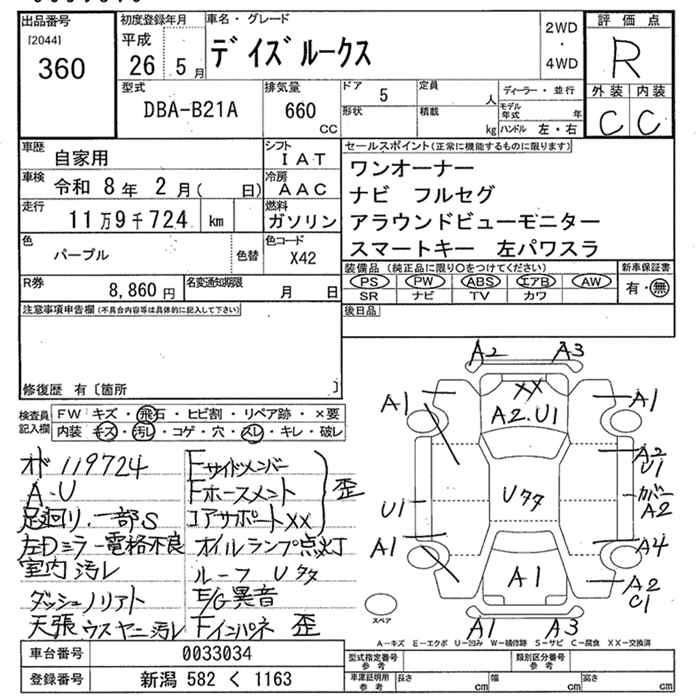 出品番号
[2044]
360
初度登録年月
平成
26 5 月
車名・グレード
デイズルークス
2WD
・
4WD
評価点
R
外装 内装
C C
型式
DBA-B21A
排気量
660
CC
ドア
5
形状
定員
人
積載
kg
ディーラー・並行
モデル年式
年
ハンドル 左・右
車歴
自家用
シフト
IAT
車検
令和 8年 2月( 日)
冷房
AAC
走行
11万9千724 km
燃料
ガソリン
色
パープル
色替
色コード
X42
R券
8,860 円
名変通知期限
月 日
セールスポイント(正常に機能するものに限ります)
ワンオーナー
ナビ フルセグ
アラウンドビューモニター
スマートキー 左パワスラ
装備品 (純正品に限り○をつけてください)
PS PW ABS エアB AW
SR ナビ TV カワ
新車保証書
有・無
後日品
注意事項申告欄(不具合内容等は具体的に記入して下さい)
修復歴 有〔箇所 〕
検査員
記入欄
FW キズ・飛石・ヒビ割・リペア跡・×要
内装 キズ・汚レ・コゲ・穴・スレ・キレ・破レ
オド 119724
A・U
足廻り、一部S
左Dミラー電格不良
室内汚レ
ダッシュノリアト
天張ウスヤニ汚レ
Fサイドメンバー
Fホースメント
コアサポートXX
歪
オイルランプ点灯
ルーフ Uタタ
E/G異音
Fインパネ 歪
A2 A3
A1 XX A1
A2.U1
A2
U1
U1 Uタタ カバー
A2
A1 A4
A1 A2
C1
スペア
A1 A3
A-キズ E-エクボ U-凹み W-補修跡 S-サビ C-腐食 XX-交換済
車台番号
0033034
登録番号
新潟 582 く 1163
型式指定番号
類別区分番号
車庫証明用参考
長さ cm
幅 cm
高さ cm